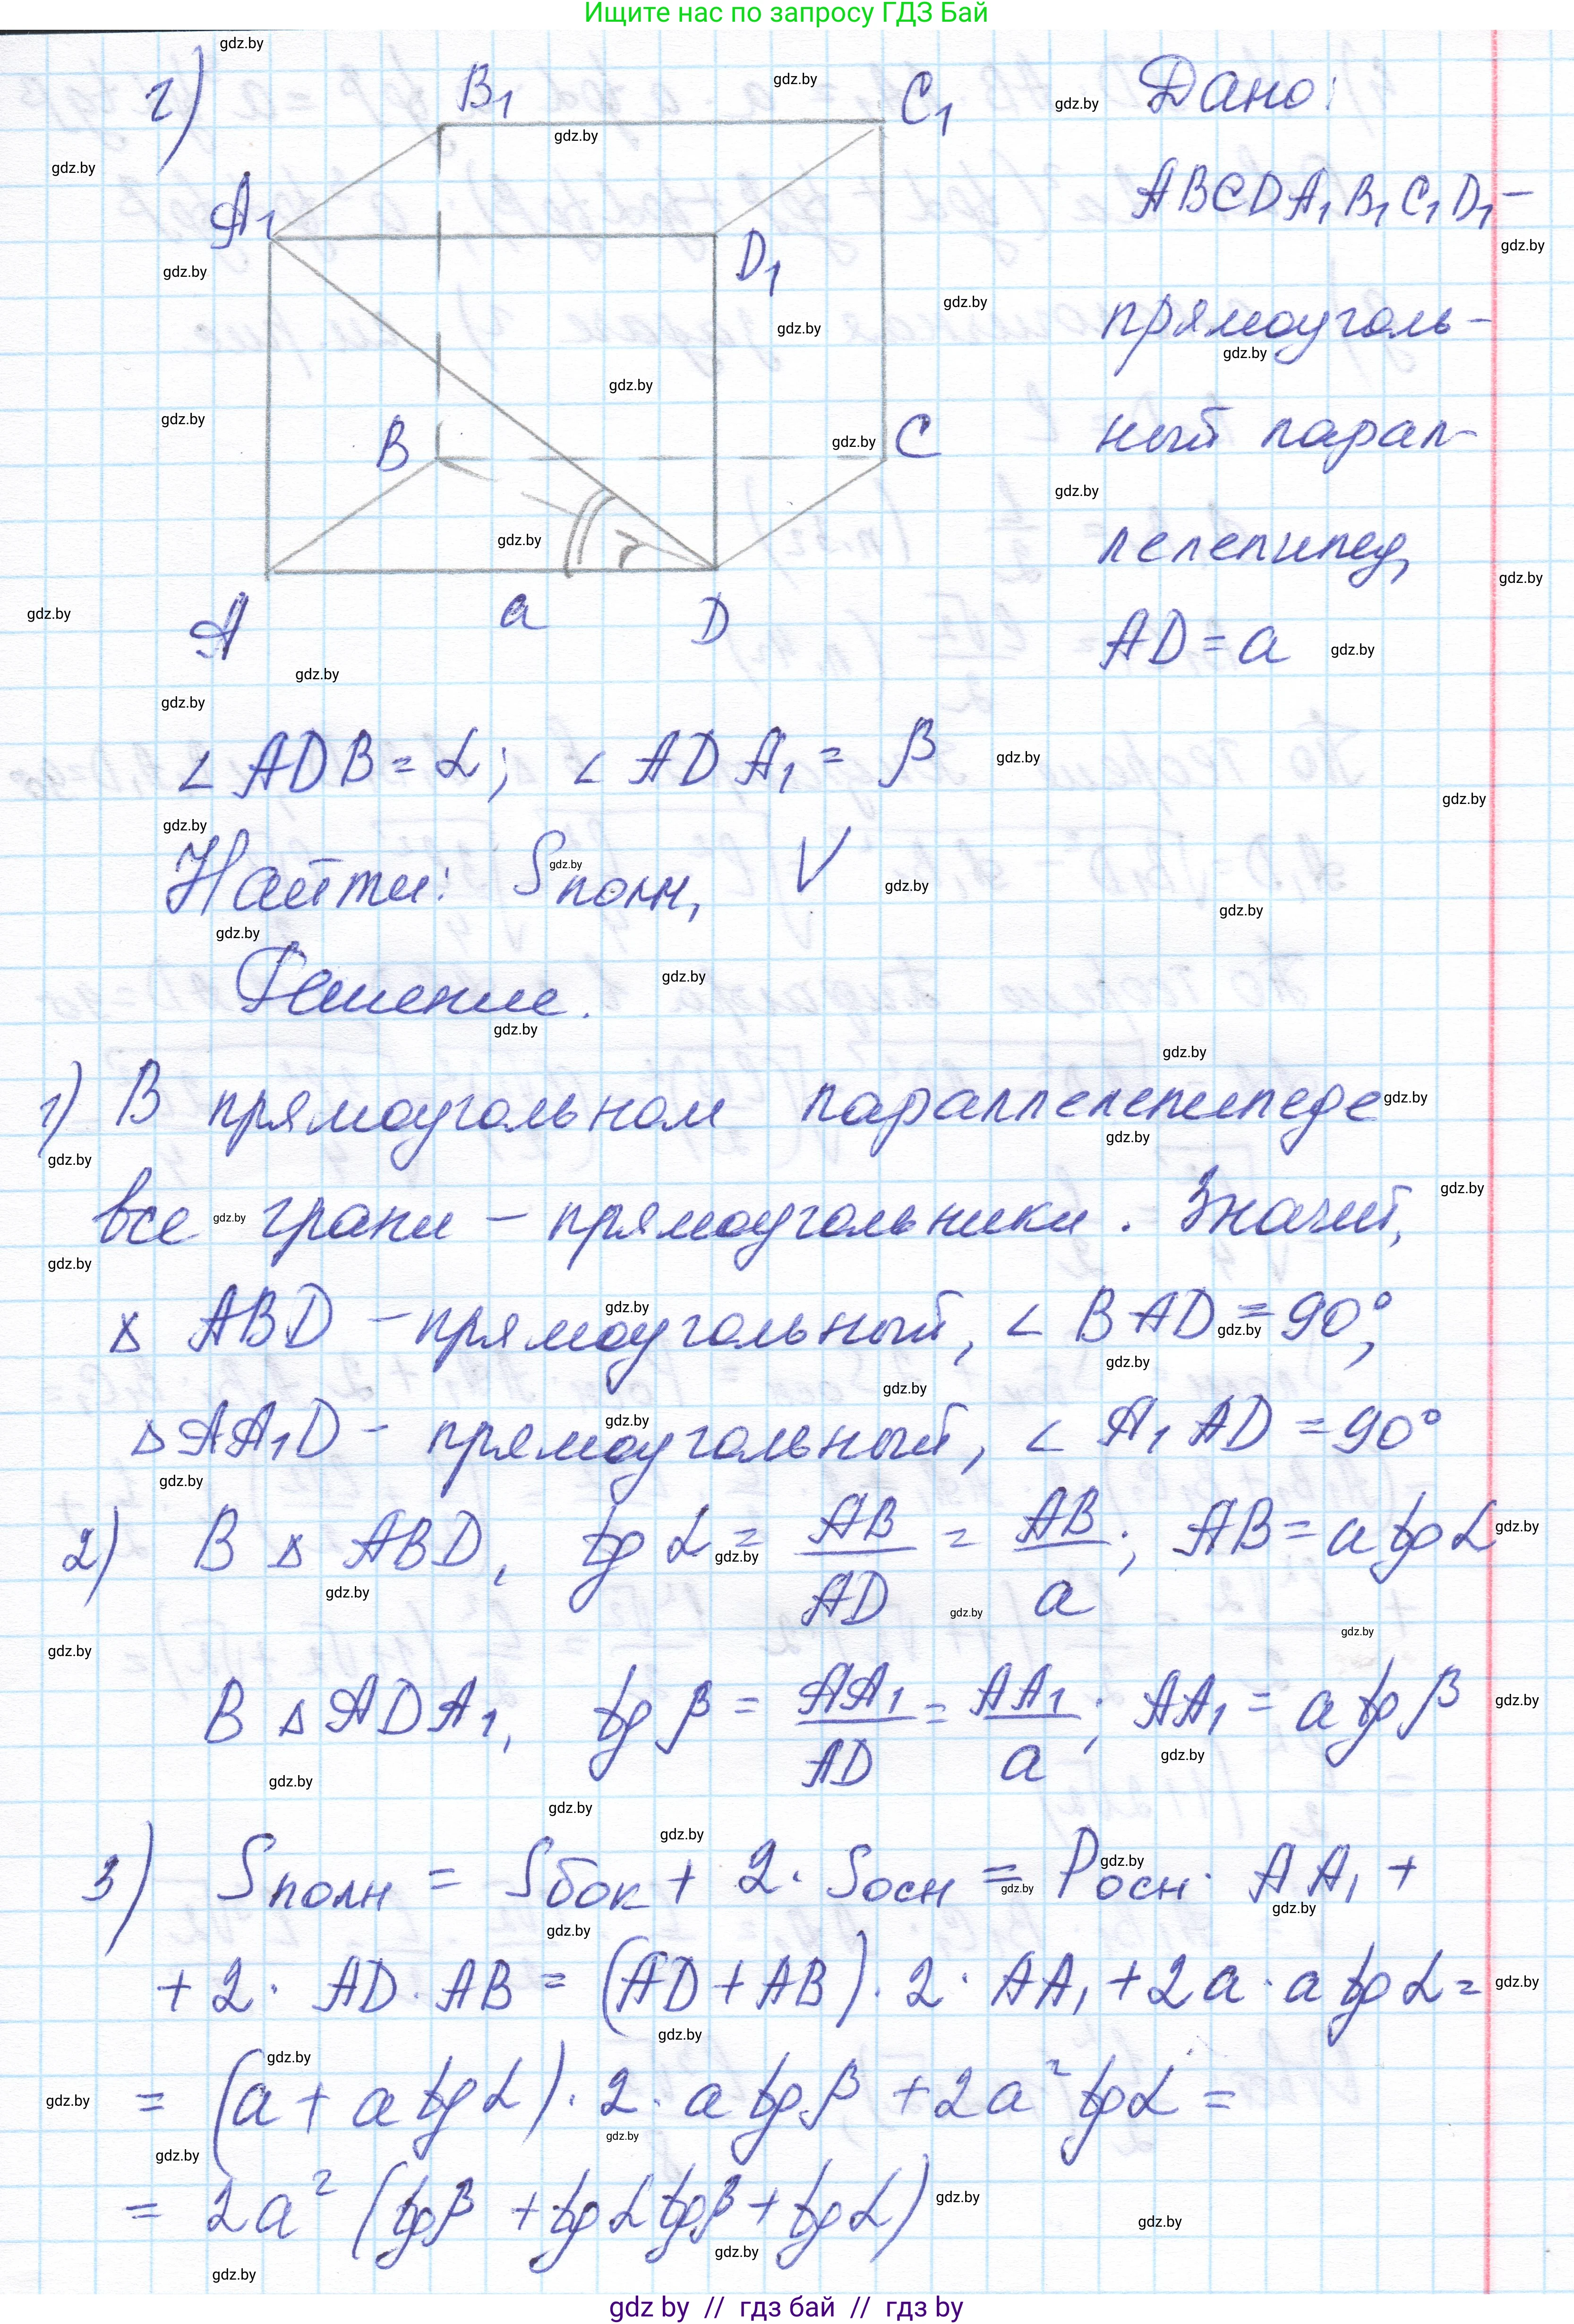 Ищите нас по запросу ГДЗ Бай
г)
B₁
C₁
A₁
D₁
B
C
A
a
D
Дано:
ABCDA₁B₁C₁D₁ –
прямоуголь-
ный парал-
лелепипед,
AD = a
∠ ADB = α; ∠ ADA₁ = β
Найти: Sполн, V
Решение.
1) В прямоугольном параллелепипеде
все грани – прямоугольники. Значит,
Δ ABD – прямоугольный, ∠ BAD = 90°,
Δ AA₁D – прямоугольный, ∠ A₁AD = 90°
2) В Δ ABD, tg α = AB/AD = AB/a; AB = a tg α
В Δ ADA₁, tg β = AA₁/AD = AA₁/a; AA₁ = a tg β
3) Sполн = Sбок + 2 · Sосн = Pосн · AA₁ +
+ 2 · AD · AB = (AD + AB) · 2 · AA₁ + 2a · a tg α =
= (a + a tg α) · 2 · a tg β + 2a² tg α =
= 2a² (tg β + tg α tg β + tg α)
gdz by // гдз бай // гдз by